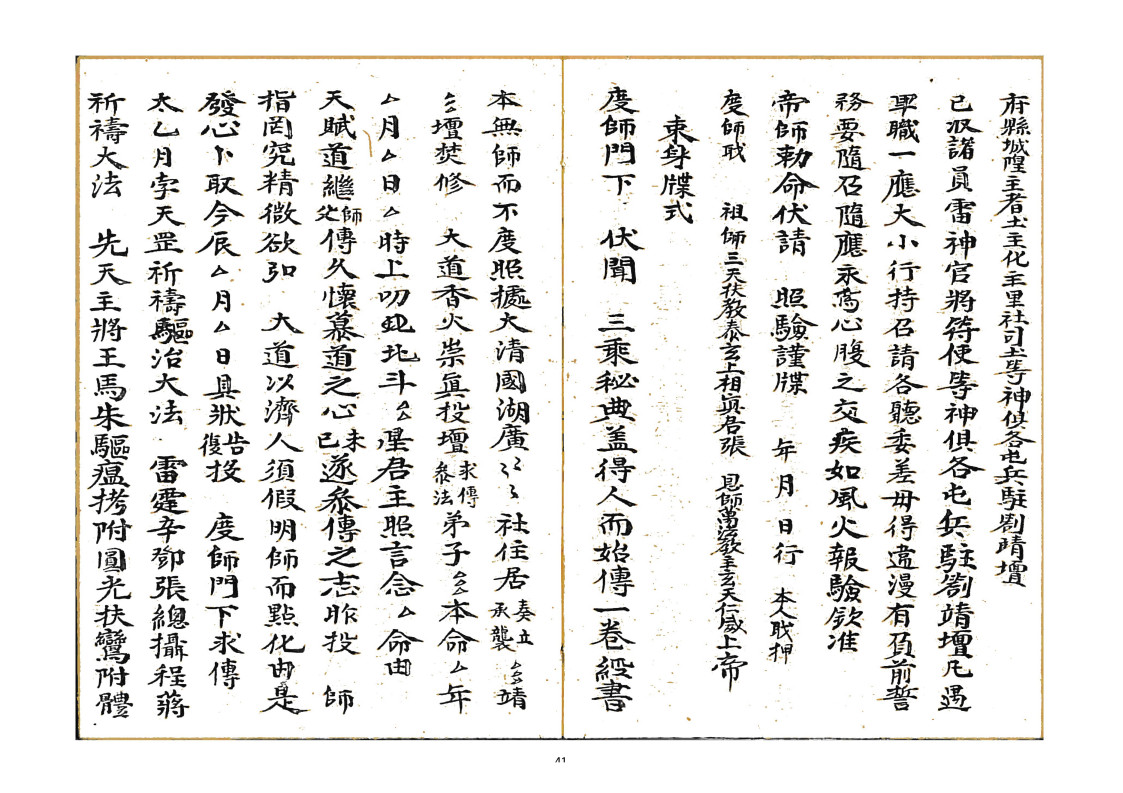 府縣城隍主者土主化主里社司土等神俱各屯兵駐劄靖壇
已收諸員雷神官將符使等神俱各屯兵駐劄靖壇凡遇
畢職一應大小行持召請各聽委差毋得違漫有負前誓
務要隨召隨應永為心腹之交疾如風火報驗欽准
帝師勅命伏請　照驗謹牒　年　月　日行　本人職押
度師職　祖師三天扶教泰玄上相眞君張　恩師萬法教主玄天仁威上帝
束身牒式
度師門下　伏聞　三乘秘典盖得人而始傳一卷經書
本無師而不度照據大清國湖廣〻〻社住居奏立承襲厶厶靖
厶厶壇焚修　大道香火崇眞投壇求傳叅法弟子厶厶本命厶年
厶月厶日厶時上叨北斗厶厶星君主照言念厶命由
天賦道繼師傳久懷慕道之心已未遂叅傳之志昨投　師
指罔究精微欲弘　大道以濟人須假明師而點化由是
發心卜取今辰厶月厶日具狀告復投　度師門下求傳
太乙月孛天罡祈禱驅治大法　雷霆辛鄧張總攝程蔣
祈禱大法　先天主將王馬朱驅瘟拷附圓光扶鸞附體
41